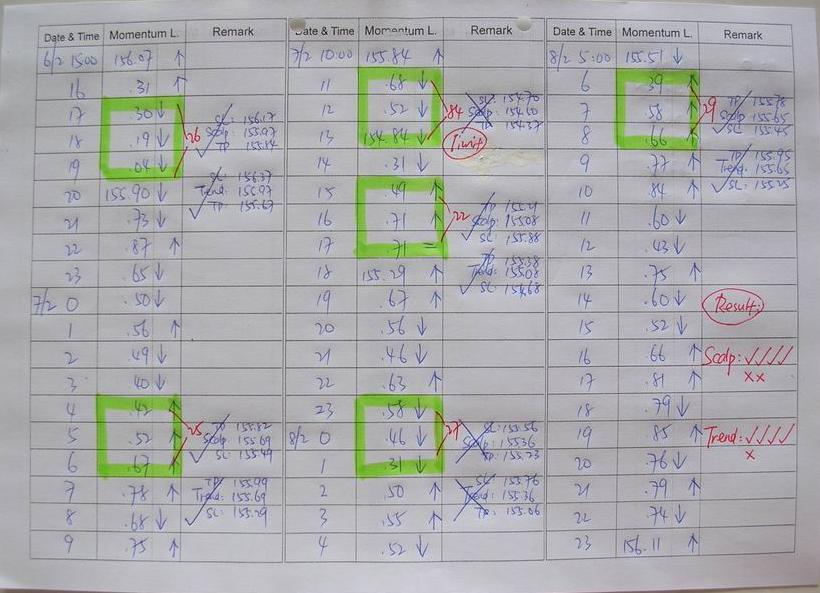 Date & Time Momentum L. Remark
6/2 15:00 156.07 ↑
16 .31 ↑
17 .30 ↓
SL: 156.17
18 .19 ↓ 26 Scalp: 155.97
TP: 155.84
19 .04 ↓
SL: 156.27
20 155.90 ↓ Trend: 155.97
TP: 155.67
21 .73 ↓
22 .87 ↑
23 .65 ↓
7/2 0 .50 ↓
1 .56 ↑
2 .49 ↓
3 .40 ↓
4 .42 ↑
TP: 155.82
5 .52 ↑ 25 Scalp: 155.69
SL: 155.49
6 .67 ↑
TP: 155.99
7 .78 ↑ Trend: 155.69
SL: 155.29
8 .68 ↓
9 .75 ↑
Date & Time Momentum L. Remark
7/2 10:00 155.84 ↑
11 .68 ↓
SL: 154.70
12 .52 ↓ 84 Scalp: 154.60
TP: 154.37
13 154.84 ↓ Limit
14 .31 ↓
15 .49 ↑
TP: 155.21
16 .71 ↑ 22 Scalp: 155.08
SL: 155.88
17 .71 =
TP: 155.38
18 155.29 ↑ Trend: 155.08
SL: 154.68
19 .67 ↑
20 .56 ↓
21 .46 ↓
22 .63 ↑
23 .58 ↓
SL: 155.56
8/2 0 .46 ↓ 27 Scalp: 155.36
TP: 155.23
1 .31 ↓
SL: 155.76
2 .50 ↑ Trend: 155.36
TP: 155.06
3 .55 ↑
4 .52 ↓
Date & Time Momentum L. Remark
8/2 5:00 155.51 ↓
6 .39 ↑
TP: 155.78
7 .58 ↑ 29 Scalp: 155.65
SL: 155.45
8 .66 ↑
TP: 155.95
9 .77 ↑ Trend: 155.65
SL: 155.25
10 .84 ↑
11 .60 ↓
12 .43 ↓
13 .75 ↑
14 .60 ↓ Result:
15 .52 ↓
16 .66 ↑ Scalp: ✓✓✓✓
17 .81 ↑ xx
18 .79 ↓
19 .85 ↑ Trend: ✓✓✓✓
x
20 .76 ↓
21 .79 ↑
22 .74 ↓
23 156.11 ↑